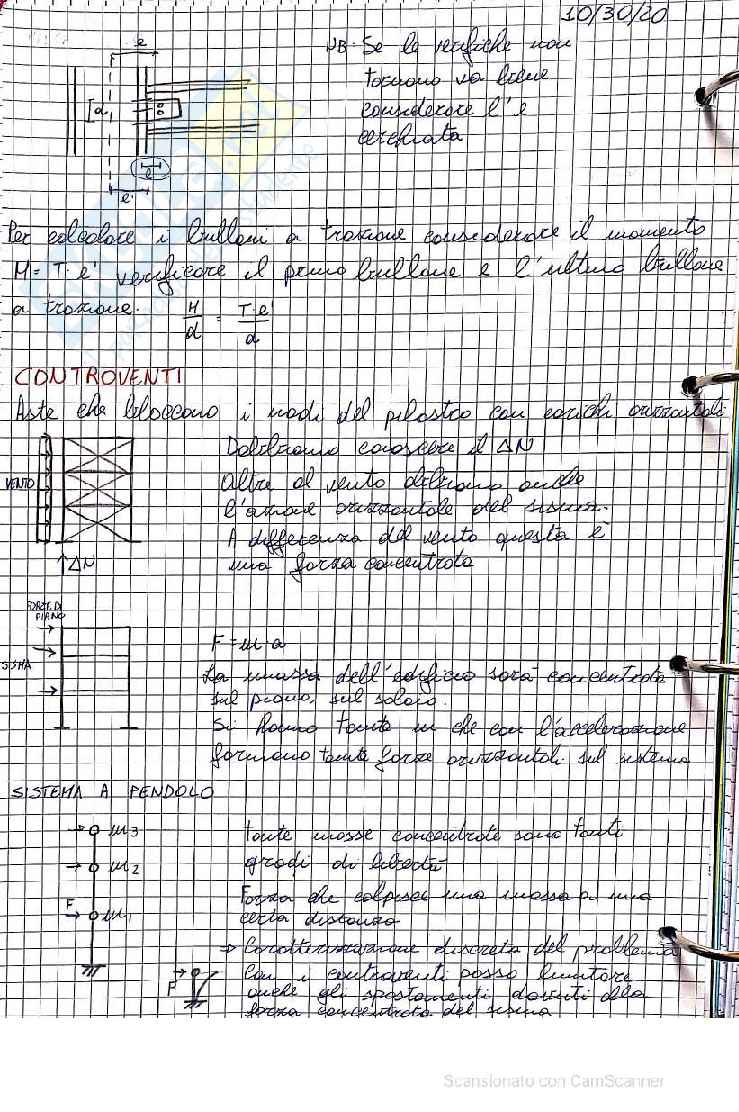 10/30/20
NB. Se le verifiche non
tornano va bene
considerare l'e
cerchiata
e
a
e
e'
Per calcolare i bulloni a trazione considerare il momento
M = T·e' verificare il primo bullone e l'ultimo bullone
a trazione. M/d = T·e'/d
CONTROVENTI
Aste che bloccano i nodi del pilastro con carichi orizzontali
Dobbiamo conoscere il ΔN
VENTO
Oltre al vento abbiamo anche
l'azione orizzontale del sisma.
A differenza del vento questa è
una forza concentrata
↑ΔN
FORZE DI
PIANO
SISMA
F = m·a
La massa dell'edificio sarà concentrata
sul piano, sul solaio.
Si hanno tante m che con l'accelerazione
formano tante forze orizzontali sul sistema
SISTEMA A PENDOLO
m3
m2
F
m1
tante masse concentrate sono tanti
gradi di libertà
Forza che colpisce una massa a una
certa distanza
⇒ Caratterizzazione discreta del problema
F
Con i controventi posso limitare
anche gli spostamenti dovuti alla
forza concentrata del sisma
Scansionato con CamScanner